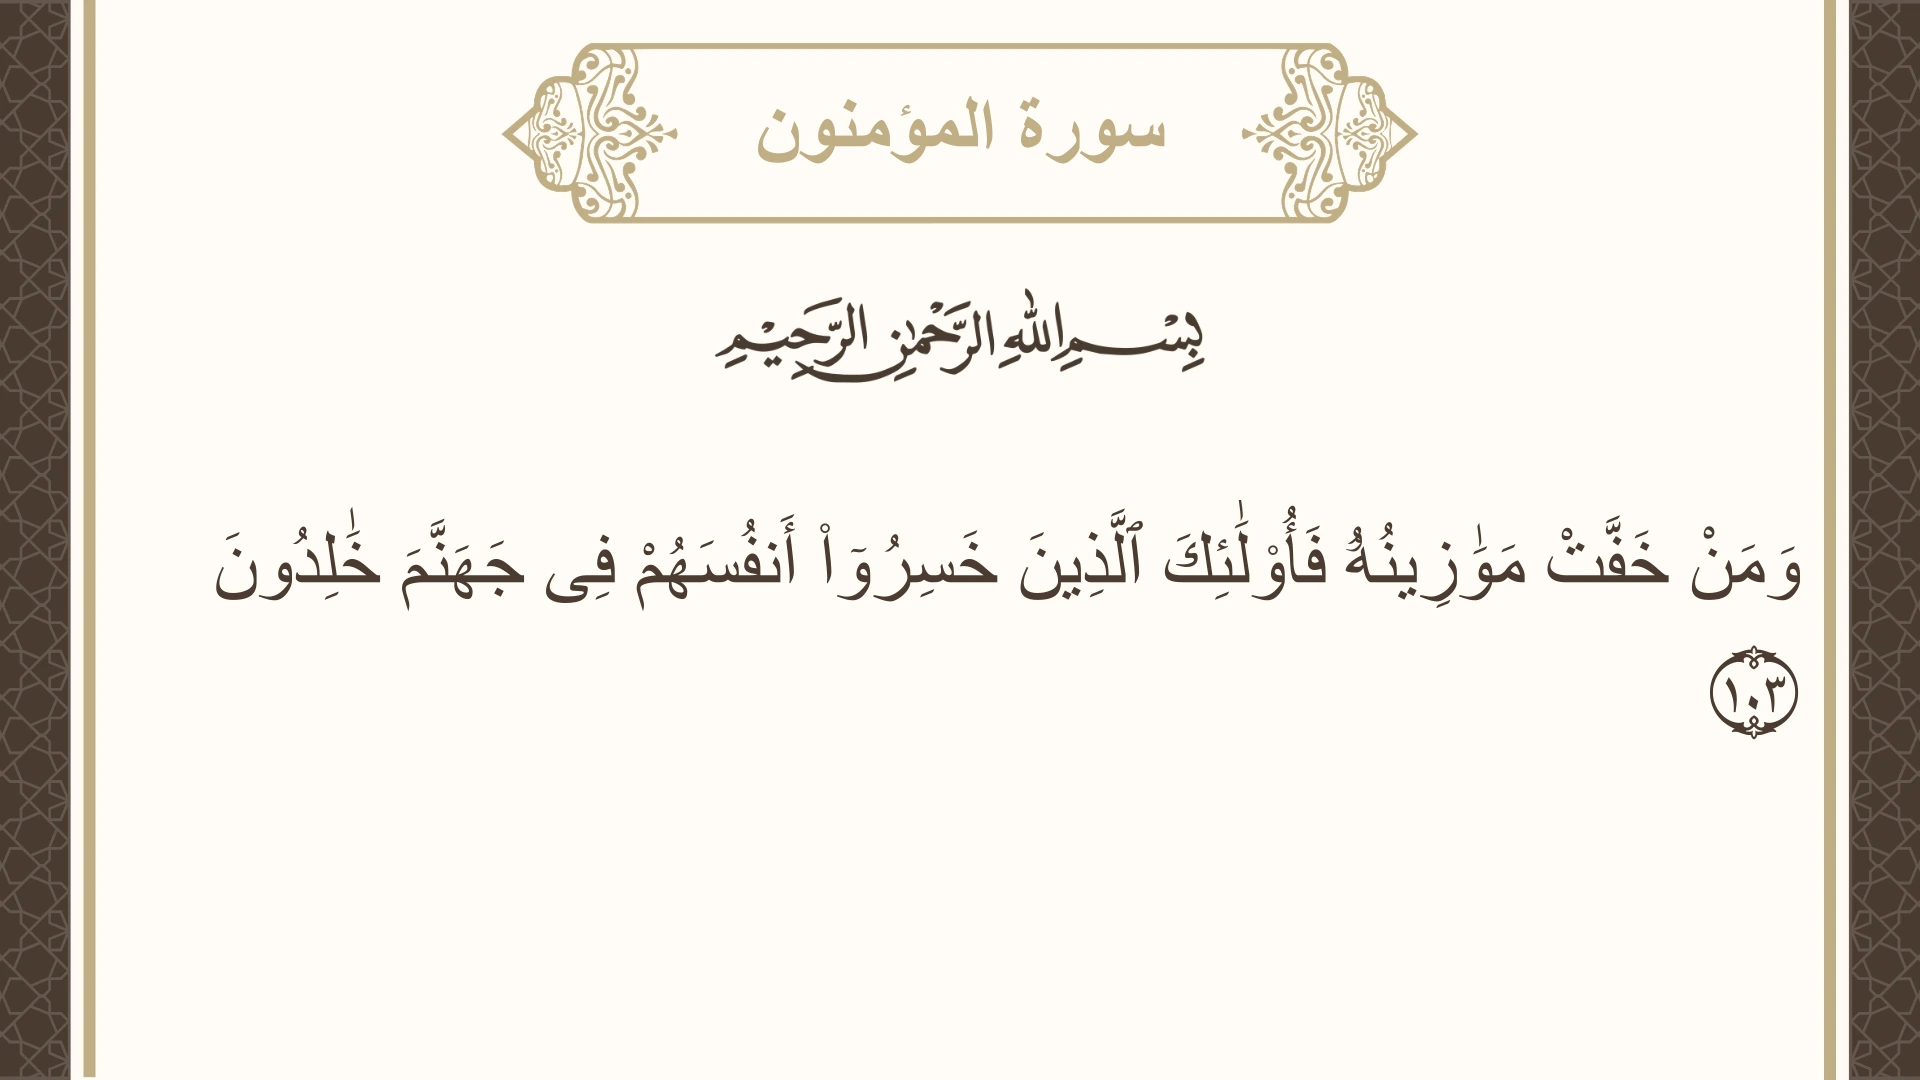 سورة المؤمنون
بِسْمِ اللهِ الرَّحْمٰنِ الرَّحِيْمِ
وَمَنْ خَفَّتْ مَوَٰزِينُهُۥ فَأُو۟لَٰٓئِكَ ٱلَّذِينَ خَسِرُوٓا۟ أَنفُسَهُمْ فِى جَهَنَّمَ خَٰلِدُونَ
١٠٣